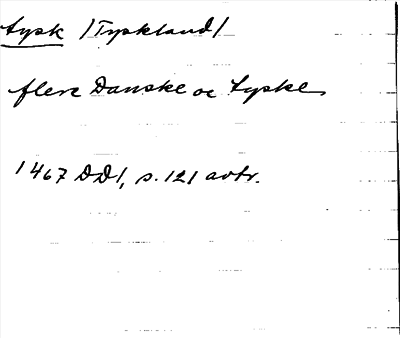 tysk /Tyskland/
flere Danske oc Tyske
1467 DD1, s. 121 avtr.